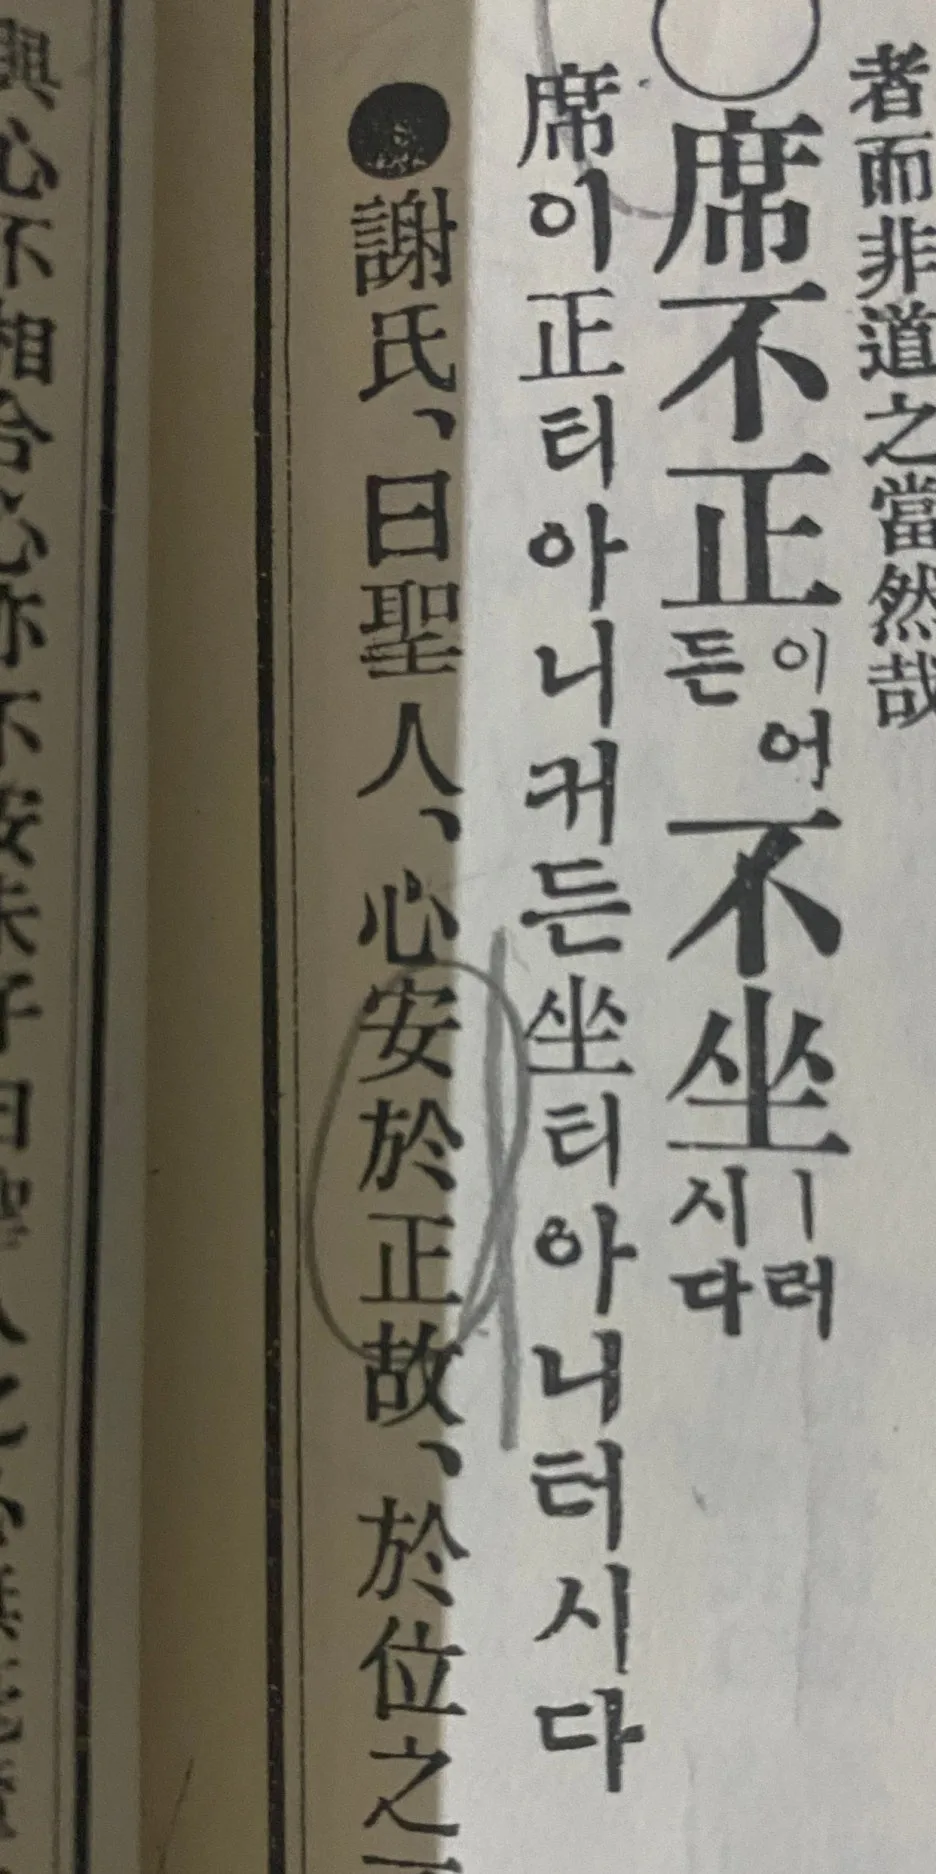 者而非道之當然哉
席不正이어든不坐ㅣ러시다
席이正티아니귀든坐티아니터시다
謝氏、曰聖人、心安於正故、於位之
與心不相合心亦不安朱子曰聖人之心無